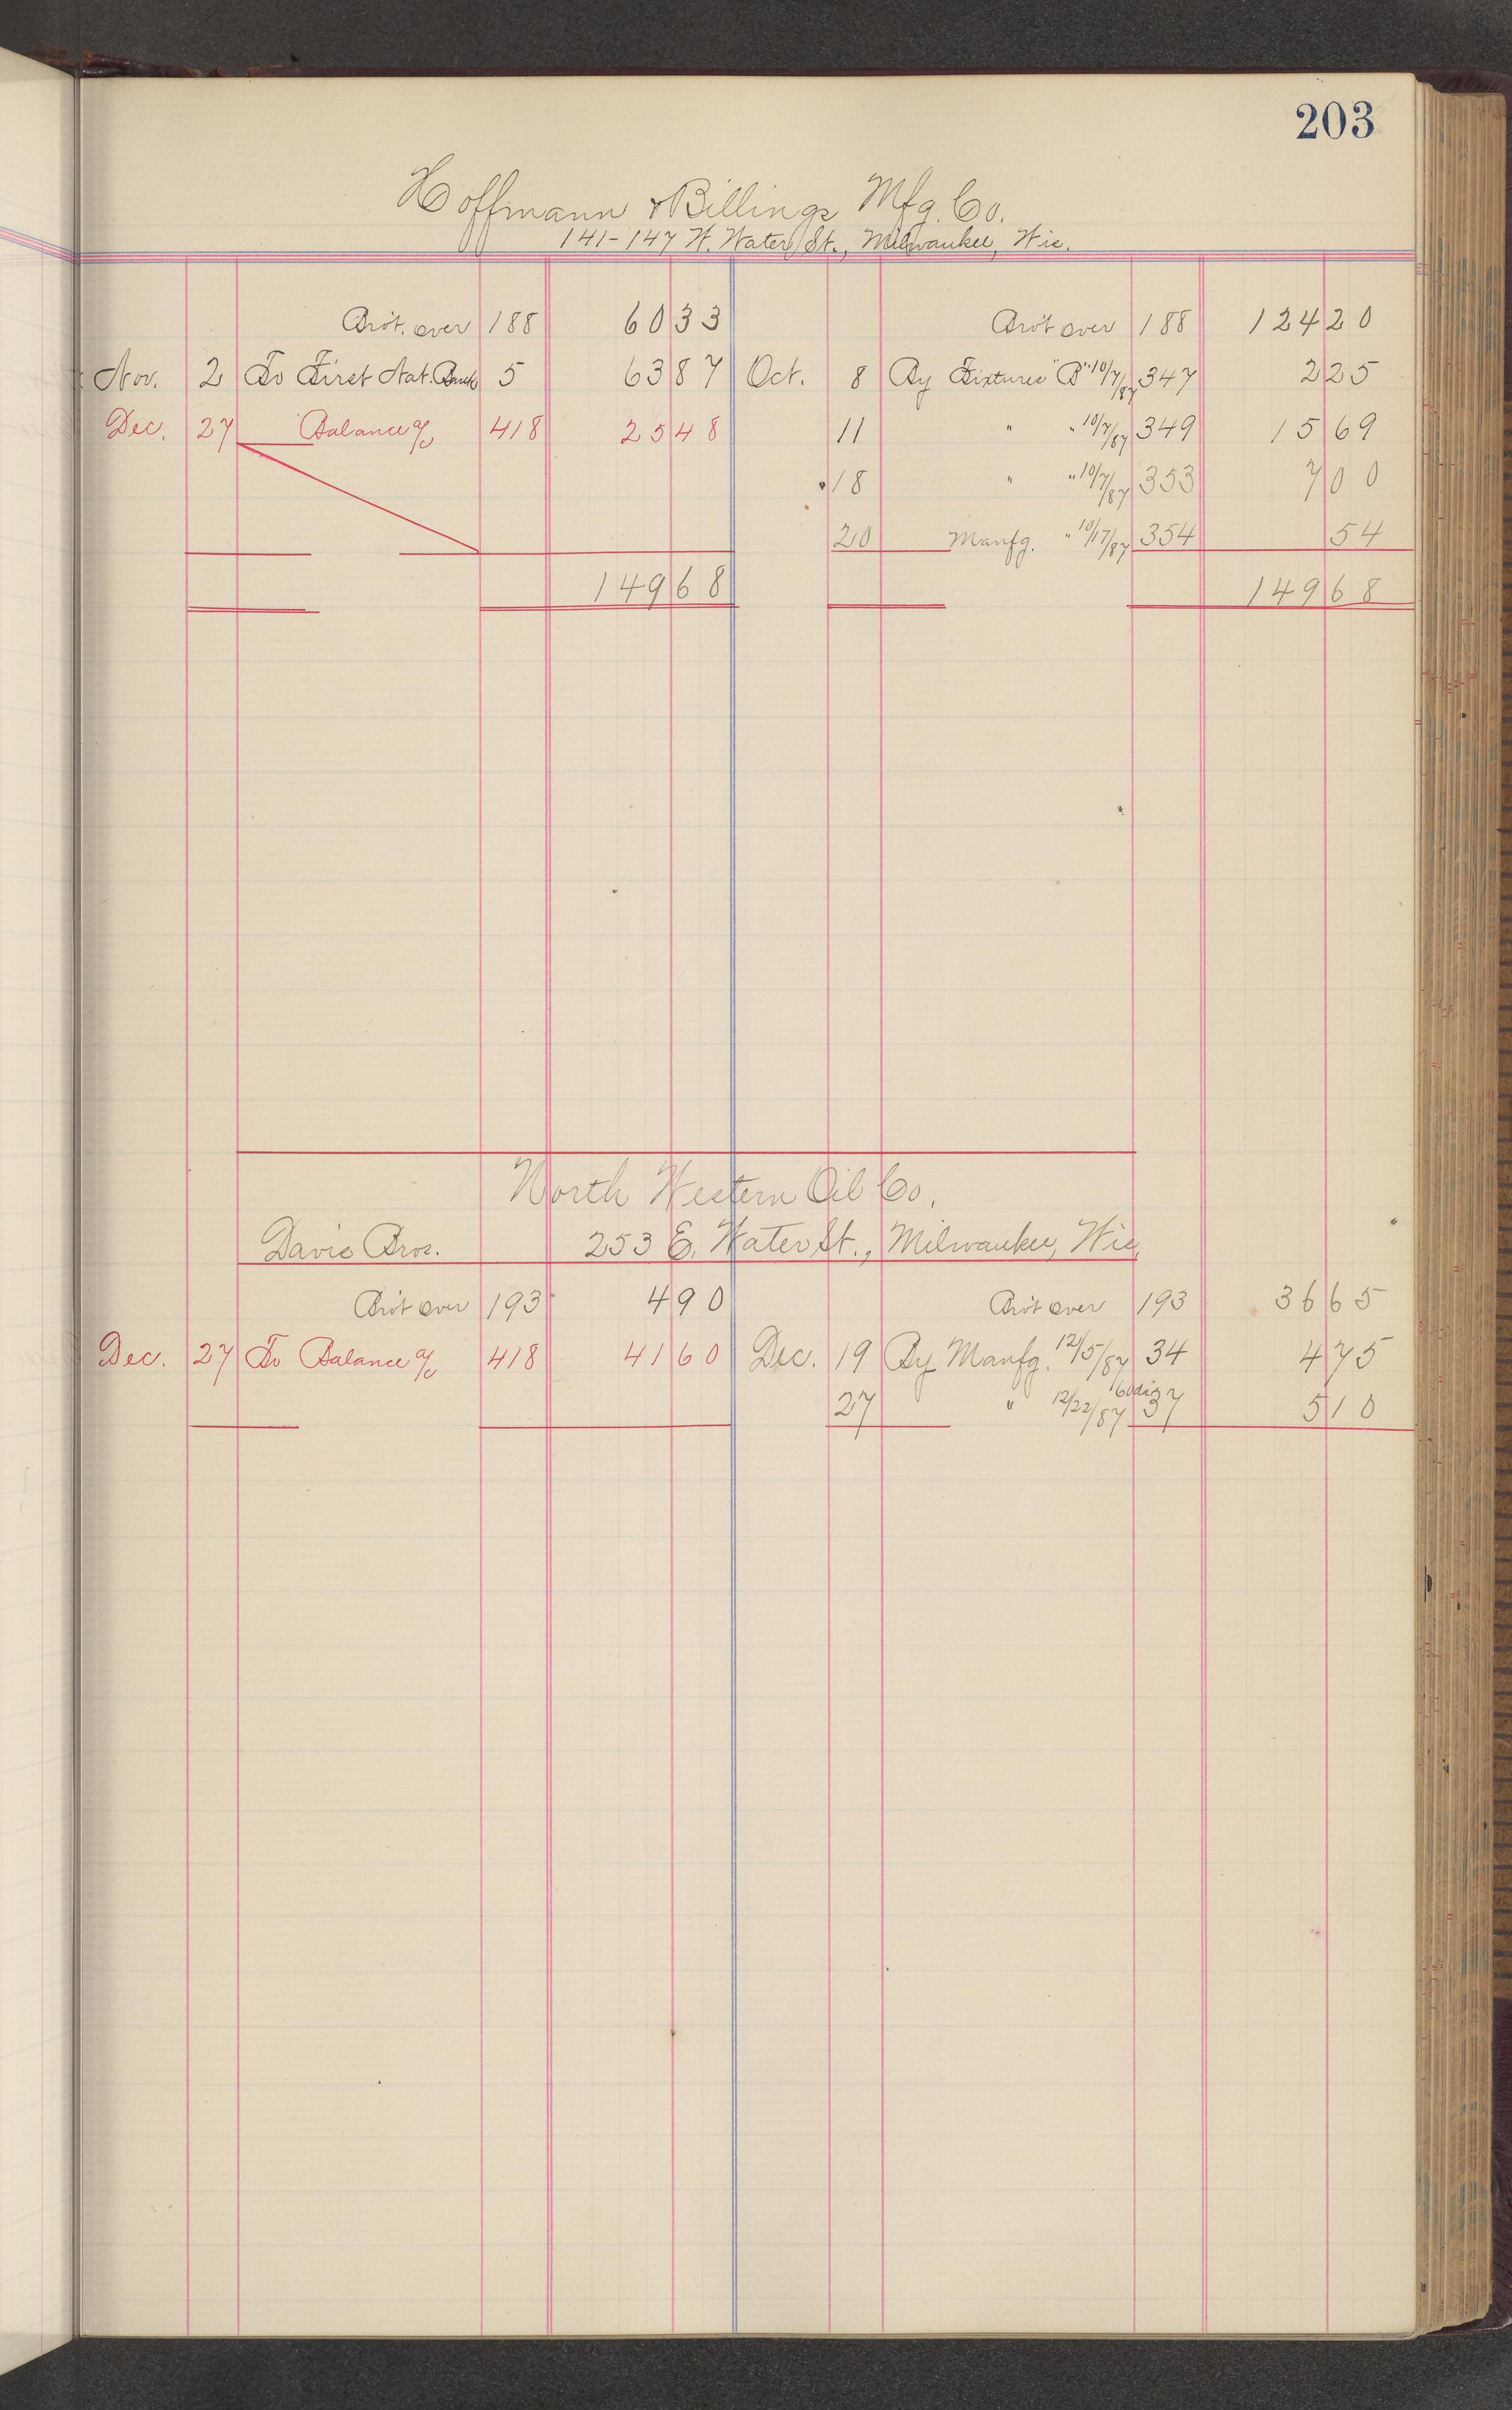 203
Hoffmann & Billings Mfg. Co.
141-147 W. Water St., Milwaukee, Wis.
Bro't. over 188 60 33 Bro't over 188 124 20
Nov. 2 To First Nat. Bank 5 63 87 Oct. 8 By Fixtures "B" 10/7/87 347 2 25
Dec. 27 Balance a/c 418 25 48 11 " " 10/7/87 349 15 69
18 " " 10/7/87 353 7 00
20 Manfg. " 10/17/87 354 54
149 68 149 68
North Western Oil Co.
Davis Bros. 253 E. Water St., Milwaukee, Wis.
Bro't over 193 4 90 Bro't over 193 36 65
Dec. 27 To Balance a/c 418 41 60 Dec. 19 By Manfg. 12/5/87 34 4 75
27 " 12/22/87 37 5 10